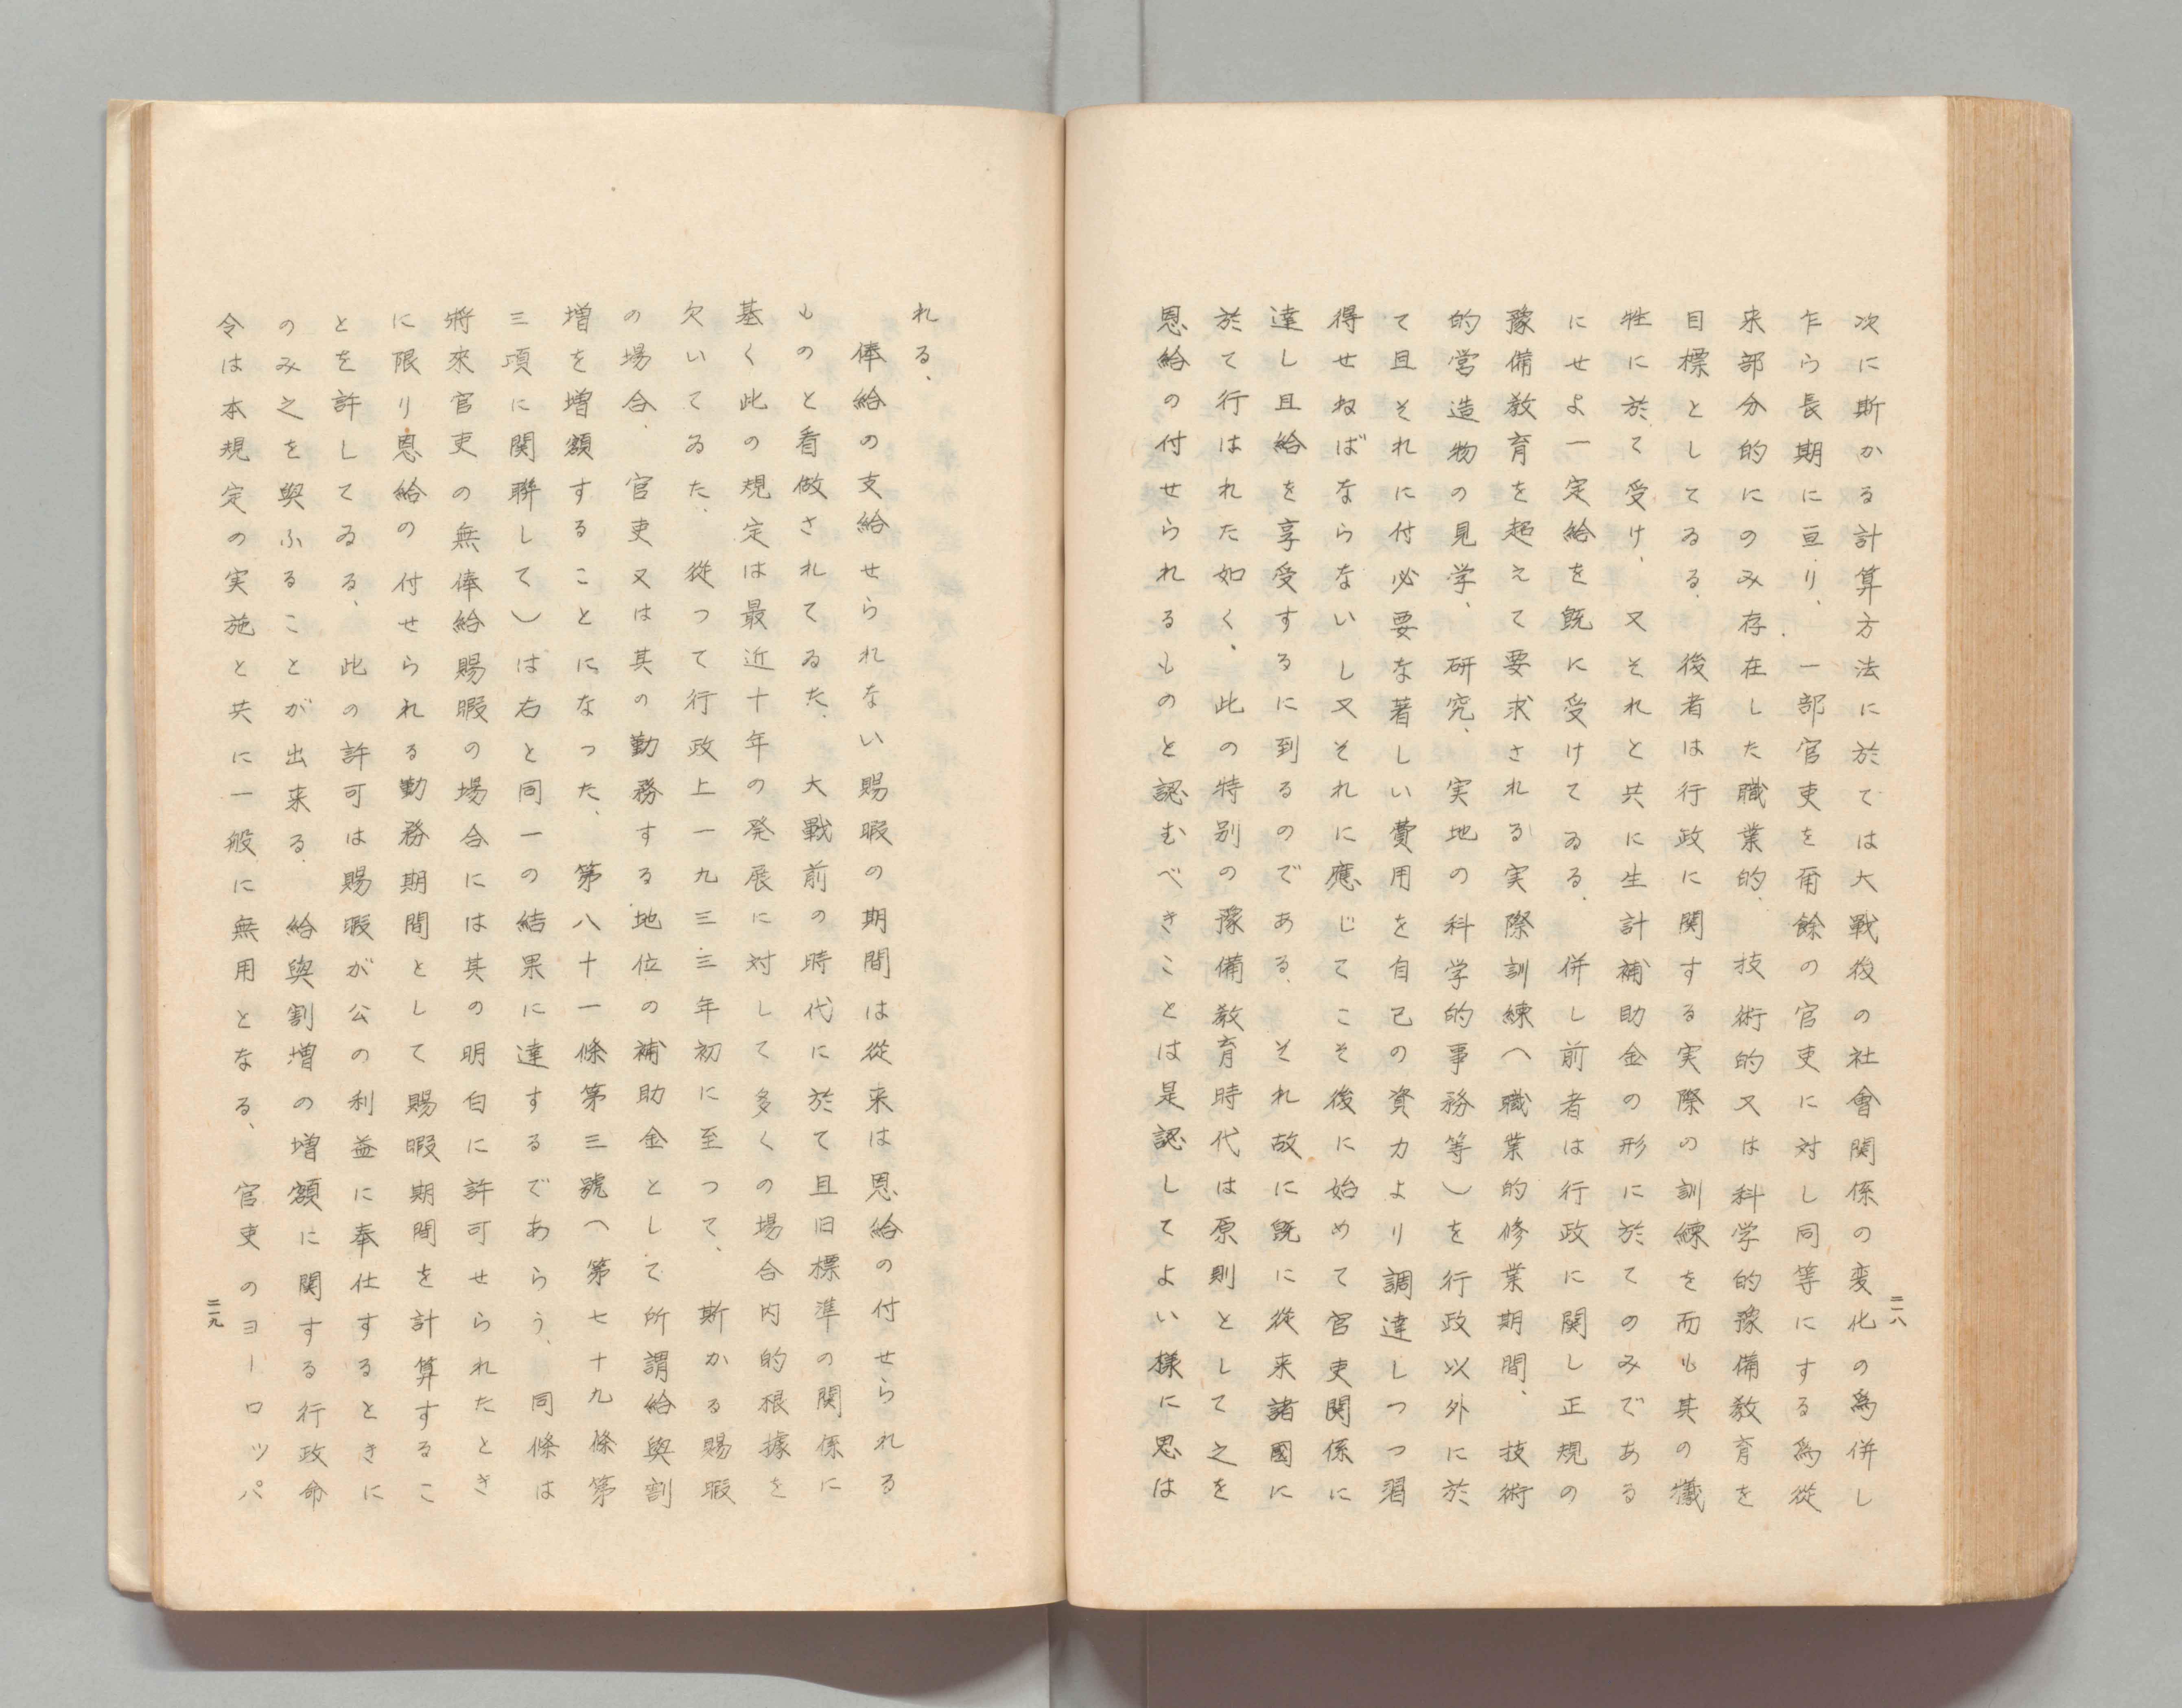 次に斯かる計算方法に於ては大戦後の社會関係の変化の爲併し
乍ら長期に亘り、一部官吏を爾餘の官吏に対し同等にする爲從
来部分的にのみ存在した職業的、技術的又は科学的豫備敎育を
目標としてゐる、後者は行政に関する実際の訓練を而も其の犠
牲に於て受け、又それと共に生計補助金の形に於てのみである
にせよ一定給を既に受けてゐる、併し前者は行政に関し正規の
豫備敎育を超えて要求される実際訓練（職業的修業期間、技術
的営造物の見学、研究、実地の科学的事務等）を行政以外に於
て且それに付必要な著しい費用を自己の資力より調達しつつ習
得せねばならないし又それに應じてこそ後に始めて官吏関係に
達し且給を享受するに到るのである、それ故に既に從来諸國に
於て行はれた如く、此の特別の豫備敎育時代は原則として之を
恩給の付せられるものと認むべきことは是認してよい様に思は
二一八
れる、
俸給の支給せられない賜暇の期間は從来は恩給の付せられる
ものと看做されてゐた、大戰前の時代に於て且旧標準の関係に
基く此の規定は最近十年の発展に対して多くの場合内的根據を
欠いてゐた、從つて行政上一九三三年初に至つて、斯かる賜暇
の場合、官吏又は其の勤務する地位の補助金として所謂給與割
増を増額することになつた、第八十一條第三號（第七十九條第
三項に関聯して）は右と同一の結果に達するであらう、同條は
將來官吏の無俸給賜暇の場合には其の明白に許可せられたとき
に限り恩給の付せられる勤務期間として賜暇期間を計算するこ
とを許してゐる、此の許可は賜暇が公の利益に奉仕するときに
のみ之を與ふることが出来る、給與割増の増額に関する行政命
令は本規定の実施と共に一般に無用となる、官吏のヨーロッパ
二一九